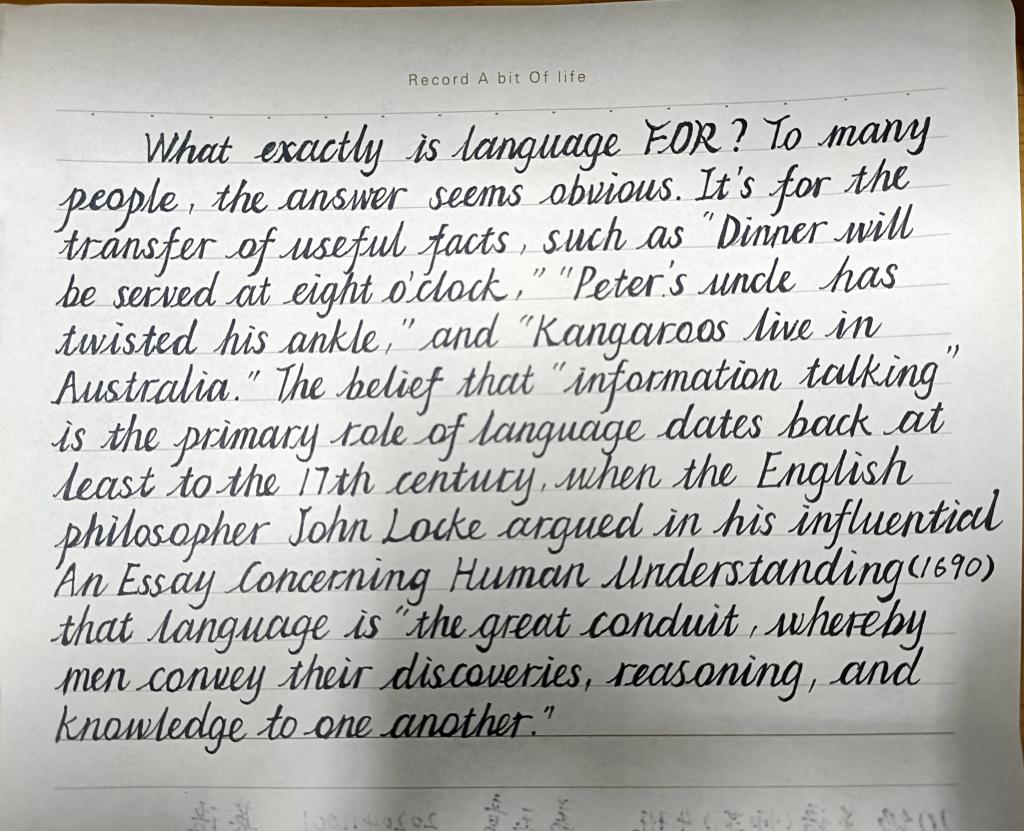 Record A bit Of life
What exactly is language FOR? To many
people, the answer seems obvious. It's for the
transfer of useful facts, such as "Dinner will
be served at eight o'clock," "Peter's uncle has
twisted his ankle," and "Kangaroos live in
Australia." The belief that "information talking"
is the primary role of language dates back at
least to the 17th century, when the English
philosopher John Locke argued in his influential
An Essay Concerning Human Understanding(1690)
that language is "the great conduit, whereby
men convey their discoveries, reasoning, and
knowledge to one another."